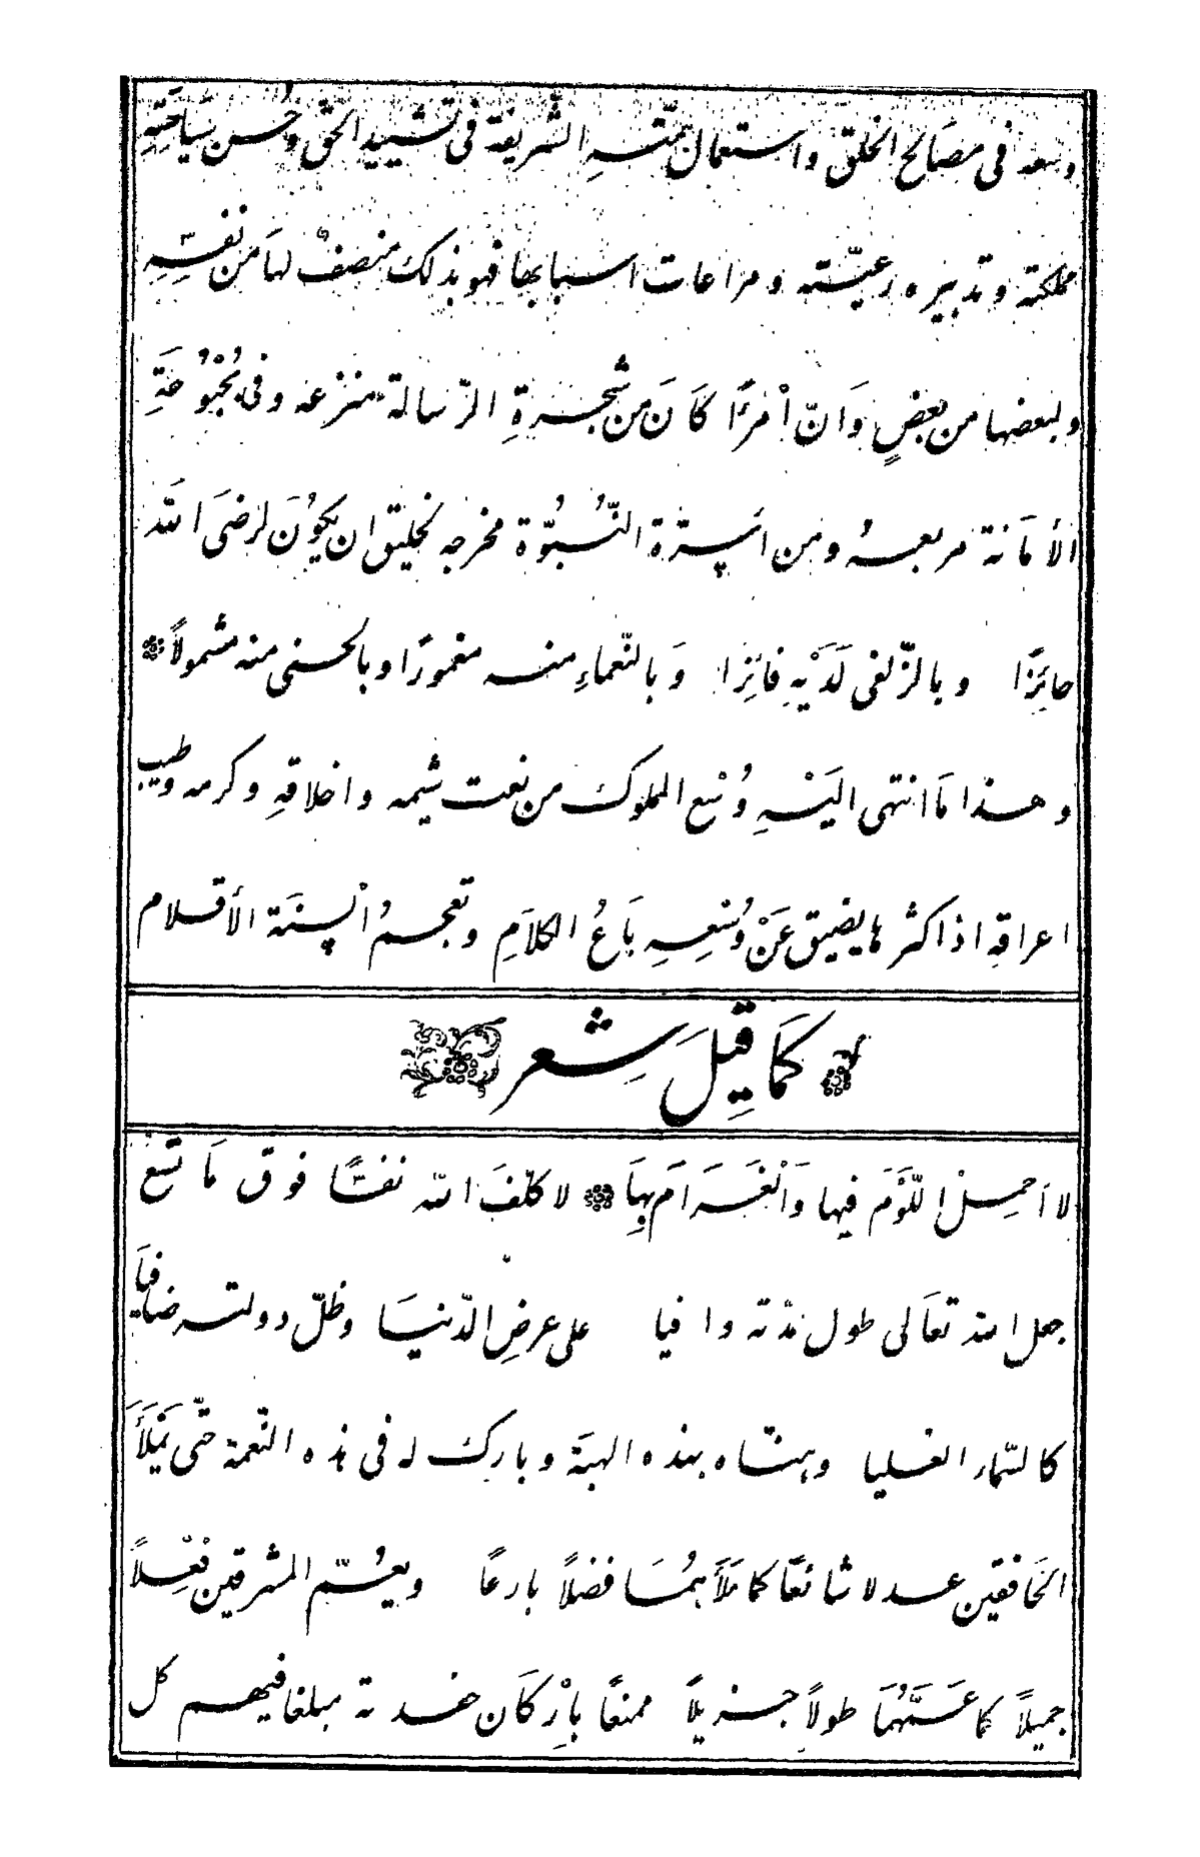 وسعه فى مصَالح الخلق واستعمال همّتهِ الشّريفة فى تشييد الحق وحُسن سيَاحَتِهِ
مملكته وتدبيره رعيّته ومراعات اسبابها فهو بذلك منصفٌ لهاَ من نفسِهِ
ولبعضها من بعضٍ وَانّ اْمرًا كاَنَ من شجرةِ الرّسالة منزعه وفى بُحْبُوُحَةِ
الأمَانة مربعهُ ومن اسِرّة النُّبُوّة مخرجه لخليق ان يكُوْنَ لرضىَ اللّه
حائزًا وبالزّلفى لَدَيْهِ فائِزا وَبالنّعماءِ منه مغمورًا وبالحسنى منه مشمولاً
وهذا مَا انتهى اليَْهِ وُسْع المملوك من نعت شيمه واخلاقهِ وكرمه وطيب
اعراقهِ اذ اكثرها يضيق عَنْ وُسْعِهِ بَاعُ الكلاَمِ وتعجمُ اْلسِنَة الأقلام
كَمَا قِيلَ شِعر
لا اَحمِلْ اللَّوْمَ فيها وَالْغَرَامَ بِهَا لا كلّفَ اللّه نفسًا فوق مَا تسَع
جعل اللّه تعَالى طول مدّته وافيا على عرضِ الدّنيَا وظلّ دولته ضافيًا
كالسّماء العليا وهنّاه بهذه الهبَة وبارك له فى هذه النّعمة حتّى يَمْلَأَ
الخَافقين عدلا شائعًا كما مَلأَهُمَا فضلاً بارعًا ويعُمّ المشرقين فعْلاً
جميلاً كما عَمَّهُمَا طولاً جزيلاً ممتعًا باِرْكَان خدمته مبلغا فيهم كل